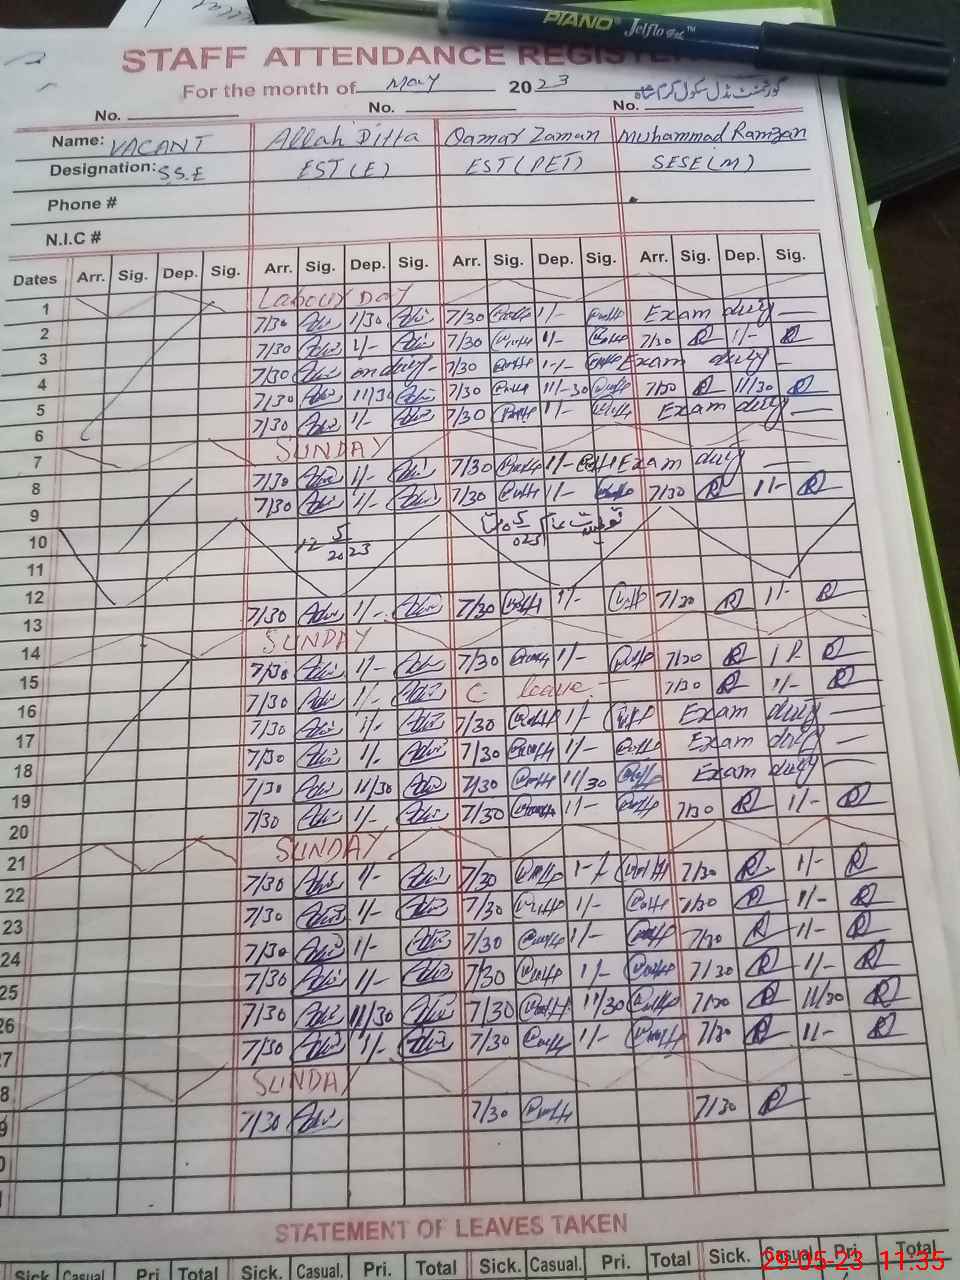 PIANO® Jelflo Gel™
STAFF ATTENDANCE REGISTE
For the month of May 2023
گورنمنٹ مڈل سکول کرم شاہ
No. No. No.
Name: VACANT Allah Ditta Qamar Zaman Muhammad Ramzan
Designation: S.S.E EST (E) EST (PET) SESE (M)
Phone #
N.I.C #
Dates Arr. Sig. Dep. Sig. Arr. Sig. Dep. Sig. Arr. Sig. Dep. Sig. Arr. Sig. Dep. Sig.
1 Labour Day
2 7/30 1/30 7/30 1/- Exam duty
3 7/30 1/- 7/30 1/- 7/30 1/-
4 7/30 on duty 7/30 1/- Exam duty
5 7/30 11/30 7/30 11/30 7/30 11/30
6 7/30 1/- 7/30 1/- Exam duty
7 SUNDAY
8 7/30 1/- 7/30 1/- Exam duty
9 7/30 1/- 7/30 1/- 7/30 1/-
10
11 12 5 2023
12
13 7/30 1/- 7/30 1/- 7/30 1/-
14 SUNDAY
15 7/30 1/- 7/30 1/- 7/30
16 7/30 1/- C- leave 7/30 1/-
17 7/30 1/- 7/30 1/- Exam duty
18 7/30 1/- 7/30 1/- Exam duty
19 7/30 11/30 7/30 11/30 Exam duty
20 7/30 1/- 7/30 1/- 7/30 1/-
21 SUNDAY
22 7/30 1/- 7/30 1-/ 7/30 1/-
23 7/30 1/- 7/30 1/- 7/30 1/-
24 7/30 1/- 7/30 1/- 7/30 1/-
25 7/30 1/- 7/30 1/- 7/30 1/-
26 7/30 11/30 7/30 11/30 7/30 11/30
27 7/30 1/- 7/30 1/- 7/30 1/-
8 SUNDAY
9 7/30 7/30 7/30
0
1
STATEMENT OF LEAVES TAKEN
Sick Casual. Pri. Total Sick. Casual. Pri. Total Sick. Casual. Pri. Total Sick. Casual Pri. Total
29-05-23 11:35